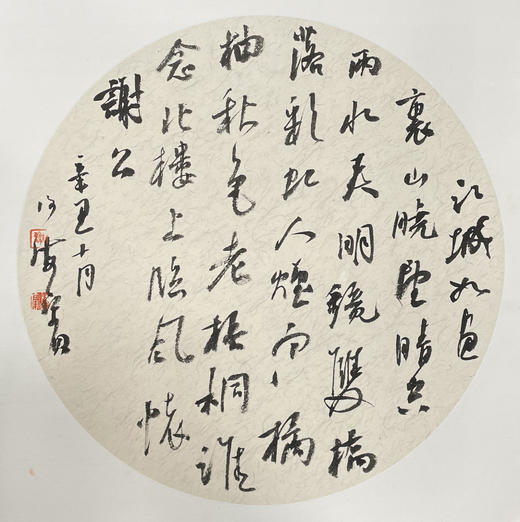 江城如畫
裏山曉望晴空
兩水夾明鏡雙橋
落彩虹人煙寒橘
柚秋色老梧桐誰
念北樓上臨風懷
謝公
辛丑十月
書